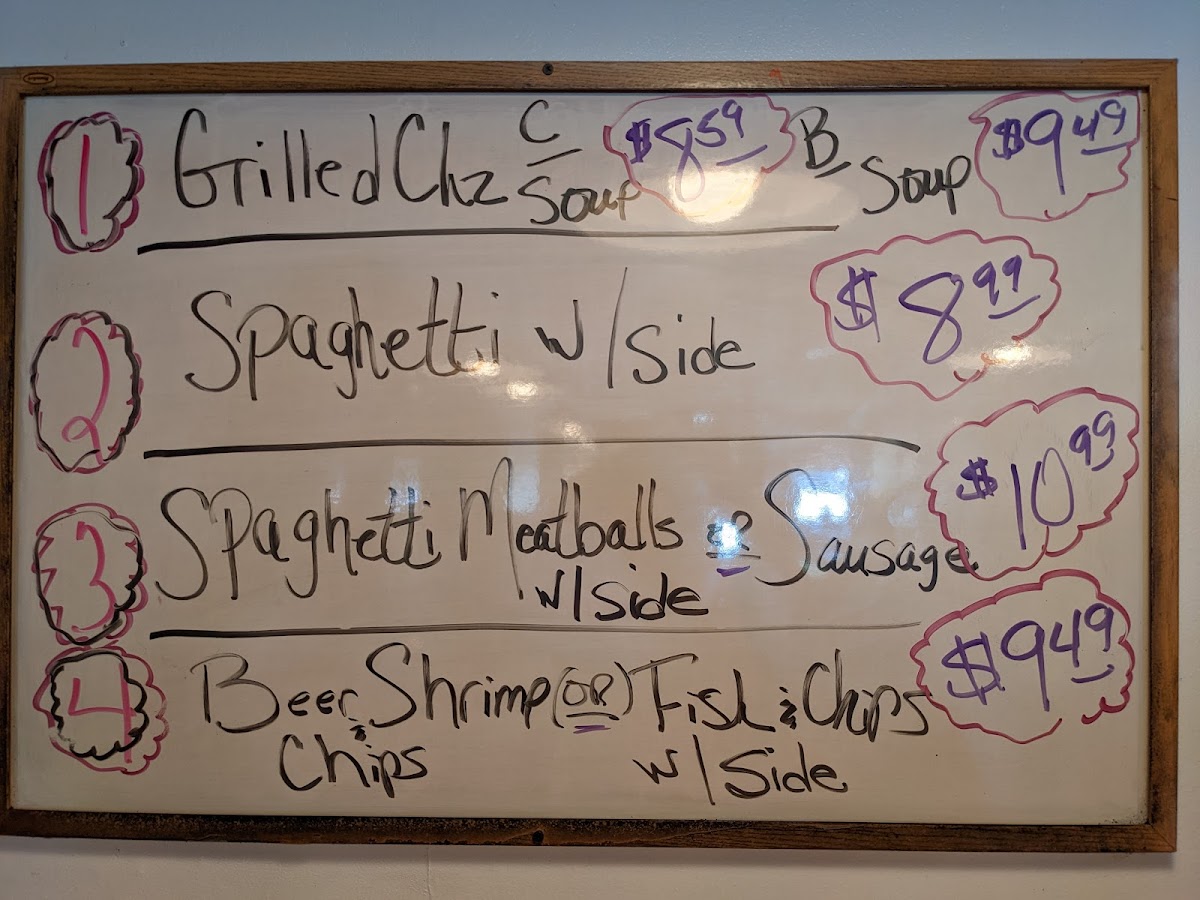 1 Grilled Chz C Soup $8.59 B Soup $9.49
2 Spaghetti w/side $8.99
3 Spaghetti Meatballs or Sausage $10.99
w/side
4 Beer Shrimp (or) Fish & Chips $9.49
& Chips w/side